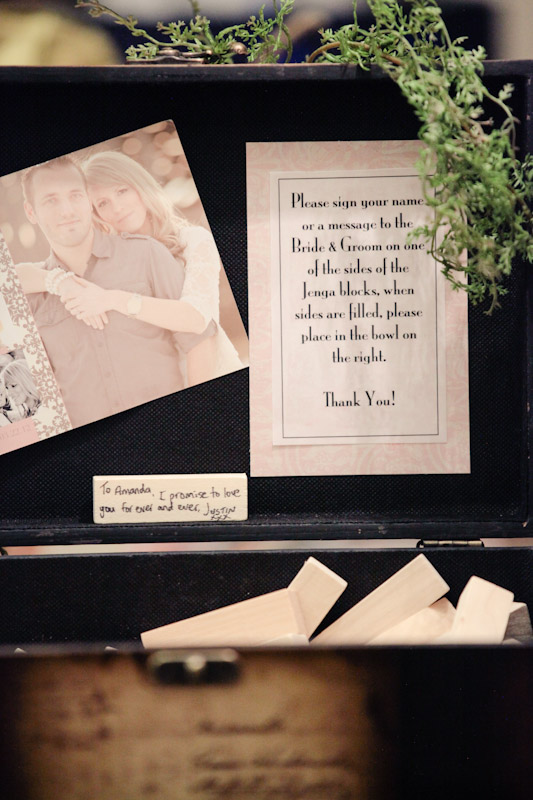 Please sign your name
or a message to the
Bride & Groom on one
of the sides of the
Jenga blocks, when
sides are filled, please
place in the bowl on
the right.
Thank You!
To Amanda, I promise to love
you for ever and ever, Justin
xxx